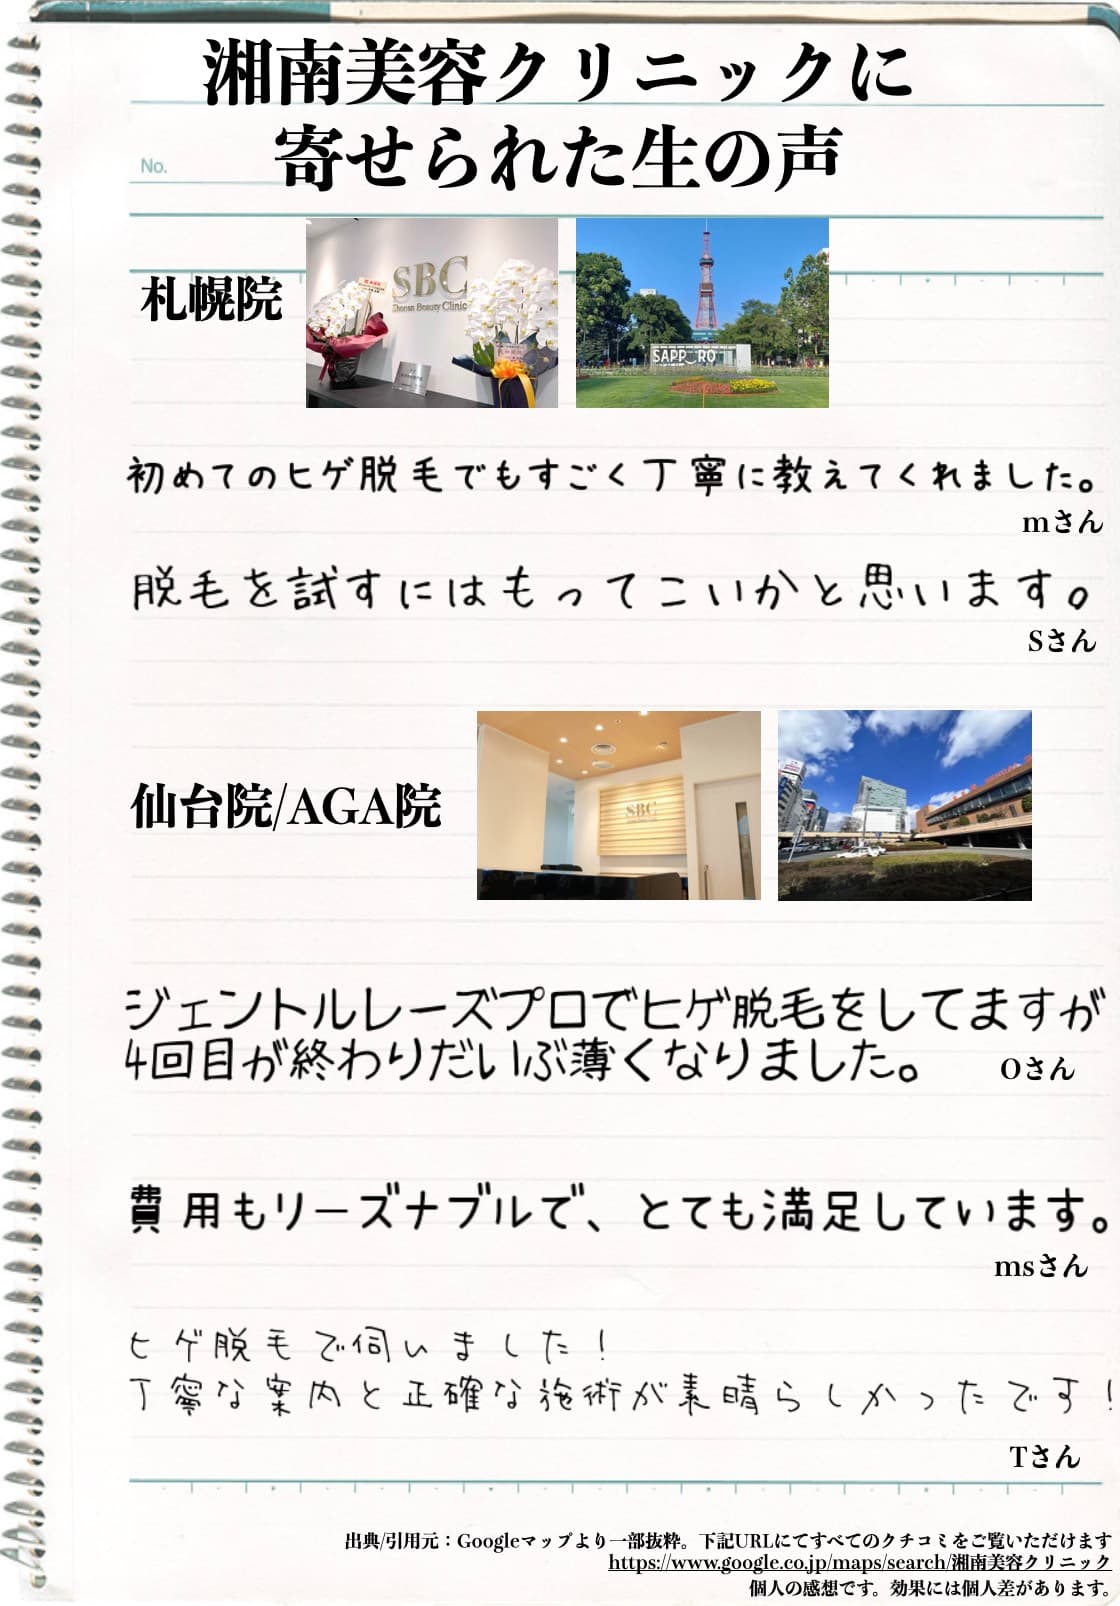 湘南美容クリニックに
寄せられた生の声
No.
札幌院
SBC
Shonan Beauty Clinic
SAPP_RO
初めてのヒゲ脱毛でもすごく丁寧に教えてくれました。
mさん
脱毛を試すにはもってこいかと思います。
Sさん
仙台院/AGA院
SBC
ジェントルレーズプロでヒゲ脱毛をしてますが
4回目が終わりだいぶ薄くなりました。
Oさん
費用もリーズナブルで、とても満足しています。
msさん
ヒゲ脱毛で伺いました！
丁寧な案内と正確な施術が素晴らしかったです！
Tさん
出典/引用元：Googleマップより一部抜粋。下記URLにてすべてのクチコミをご覧いただけます
https://www.google.co.jp/maps/search/湘南美容クリニック
個人の感想です。効果には個人差があります。